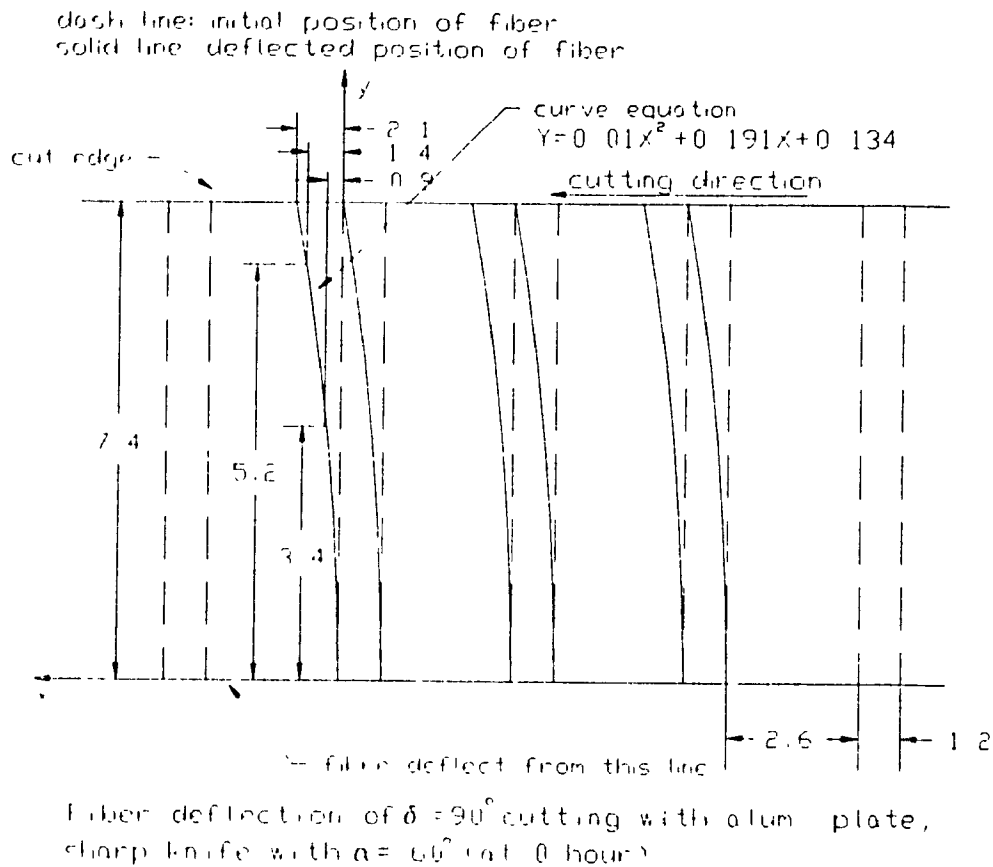 dash line: initial position of fiber
solid line deflected position of fiber
y
curve equation
Y=0 01X²+0 191X+0 134
2 1
1 4
0 9
cut edge
cutting direction
7 4
5.2
3 4
2.6
1 2
fiber deflect from this line
Fiber deflection of δ =90° cutting with alum plate,
sharp knife with α= 60° (at 0 hour)